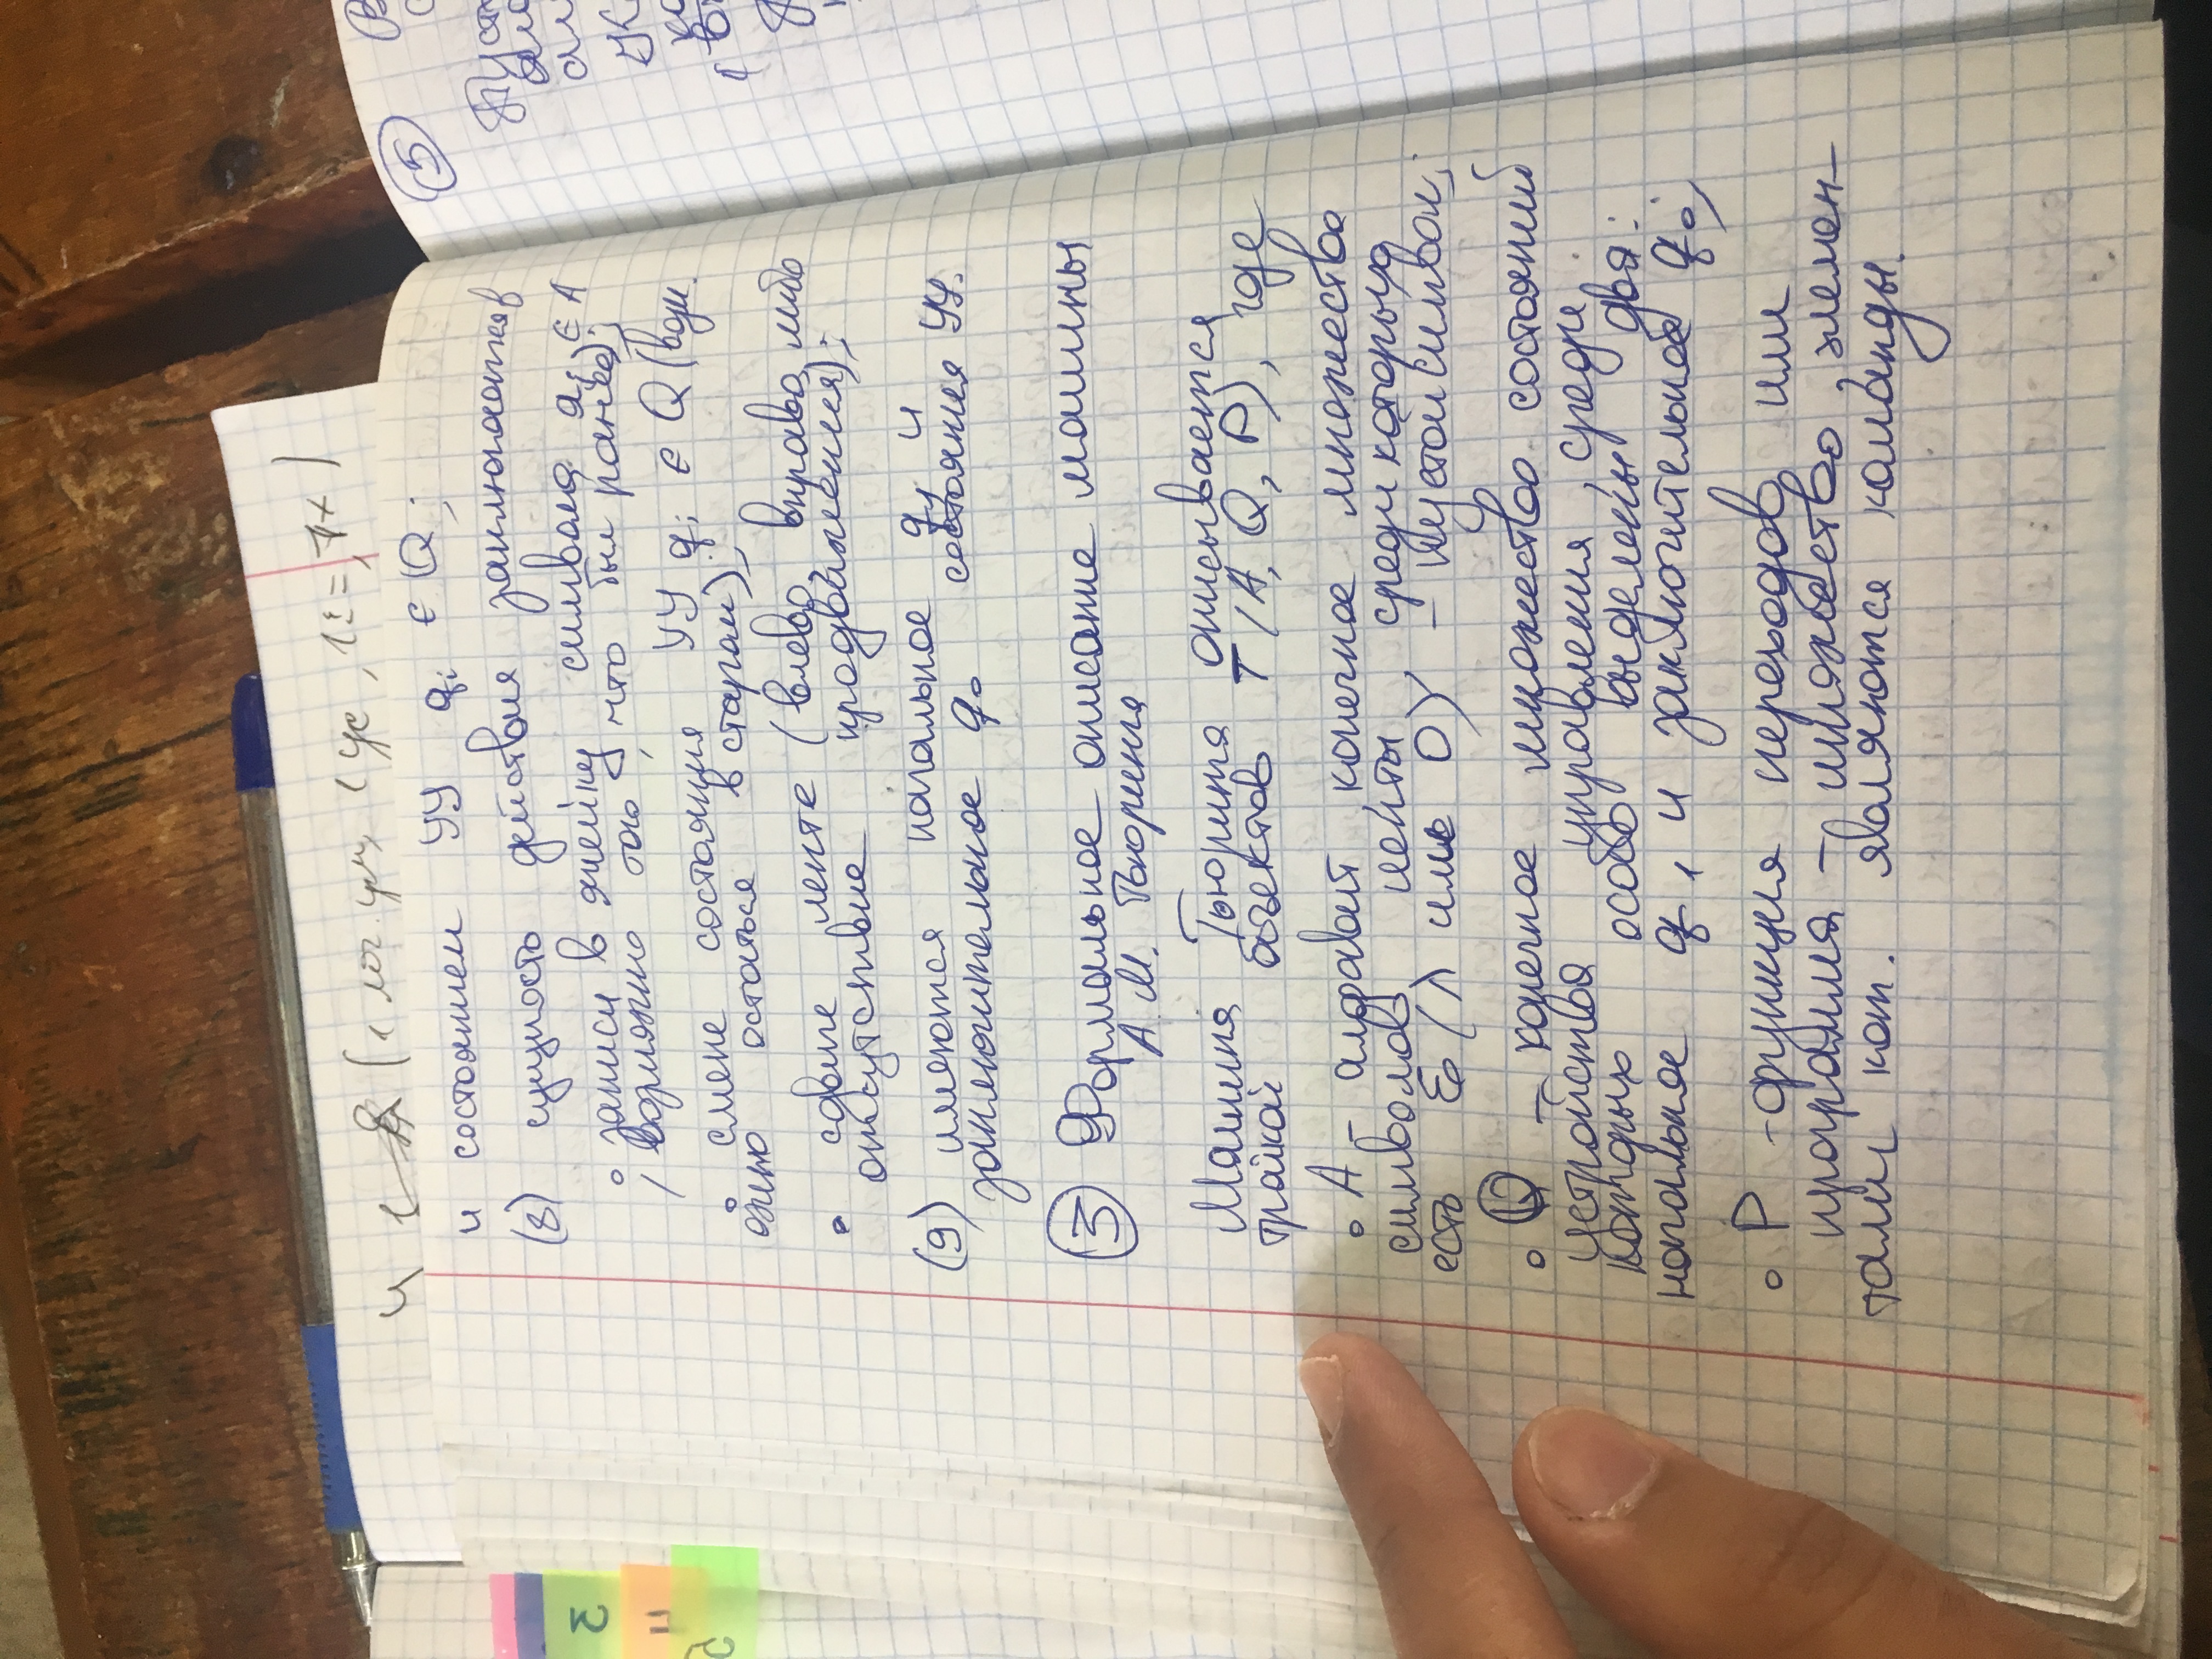 и состоянием УУ qᵢ ∈ Q;
(8) сущность действия заключается в
◦ записи в ячейку символа aᵢ ∈ A
(возможно того, что был ранее);
◦ смене состояния УУ qⱼ ∈ Q (возм.
ожно остаться в старом);
◦ сдвиге ленте (влево, вправо, либо
отсутствие продвижения);
(9) имеются начальное q₁ и
заключительное q₀ состояния УУ.
③ Формальное описание машины
А. М. Тьюринга
Машина Тьюринга описывается
тройкой объектов T (A, Q, P), где
◦ A – алфавит, конечное множество
символов ленты, среди которых
есть ε (λ или 0) – пустой символ;
◦ Q – конечное множество состояний
устройства управления, среди
которых особо выделены два:
начальное q₁ и заключительное q₀;
◦ P – функция переходов или
программа – множество, элемен–
тами кот. являются команды.
3
4
5
⑤